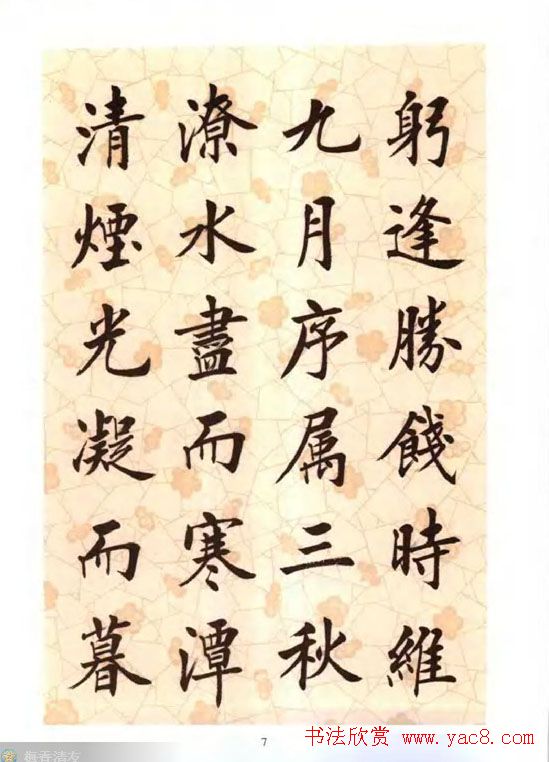 躬逢勝餞時維
九月序属三秋
潦水盡而寒潭
清煙光凝而暮
7
书法欣赏 www.yac8.com
梅香清友